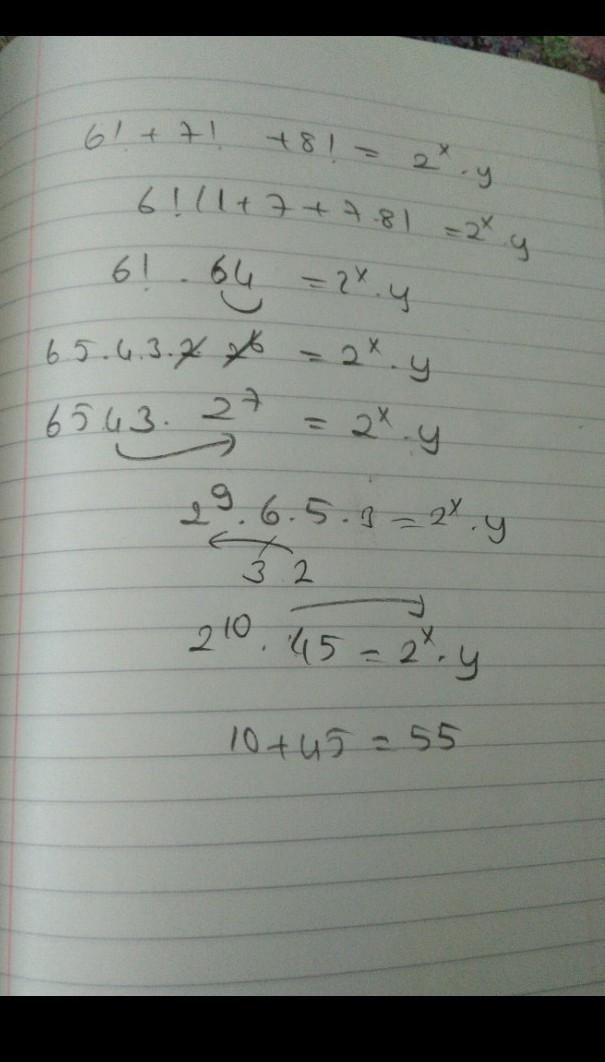 6! + 7! + 8! = 2^x . y
6! (1 + 7 + 7.8) = 2^x . y
6! . 64 = 2^x . y
6 5 . 4 . 3 . 2 2^6 = 2^x . y
6 5 4 3 . 2^7 = 2^x . y
2^9 . 6 . 5 . 3 = 2^x . y
3 2
2^10 . 45 = 2^x . y
10 + 45 = 55